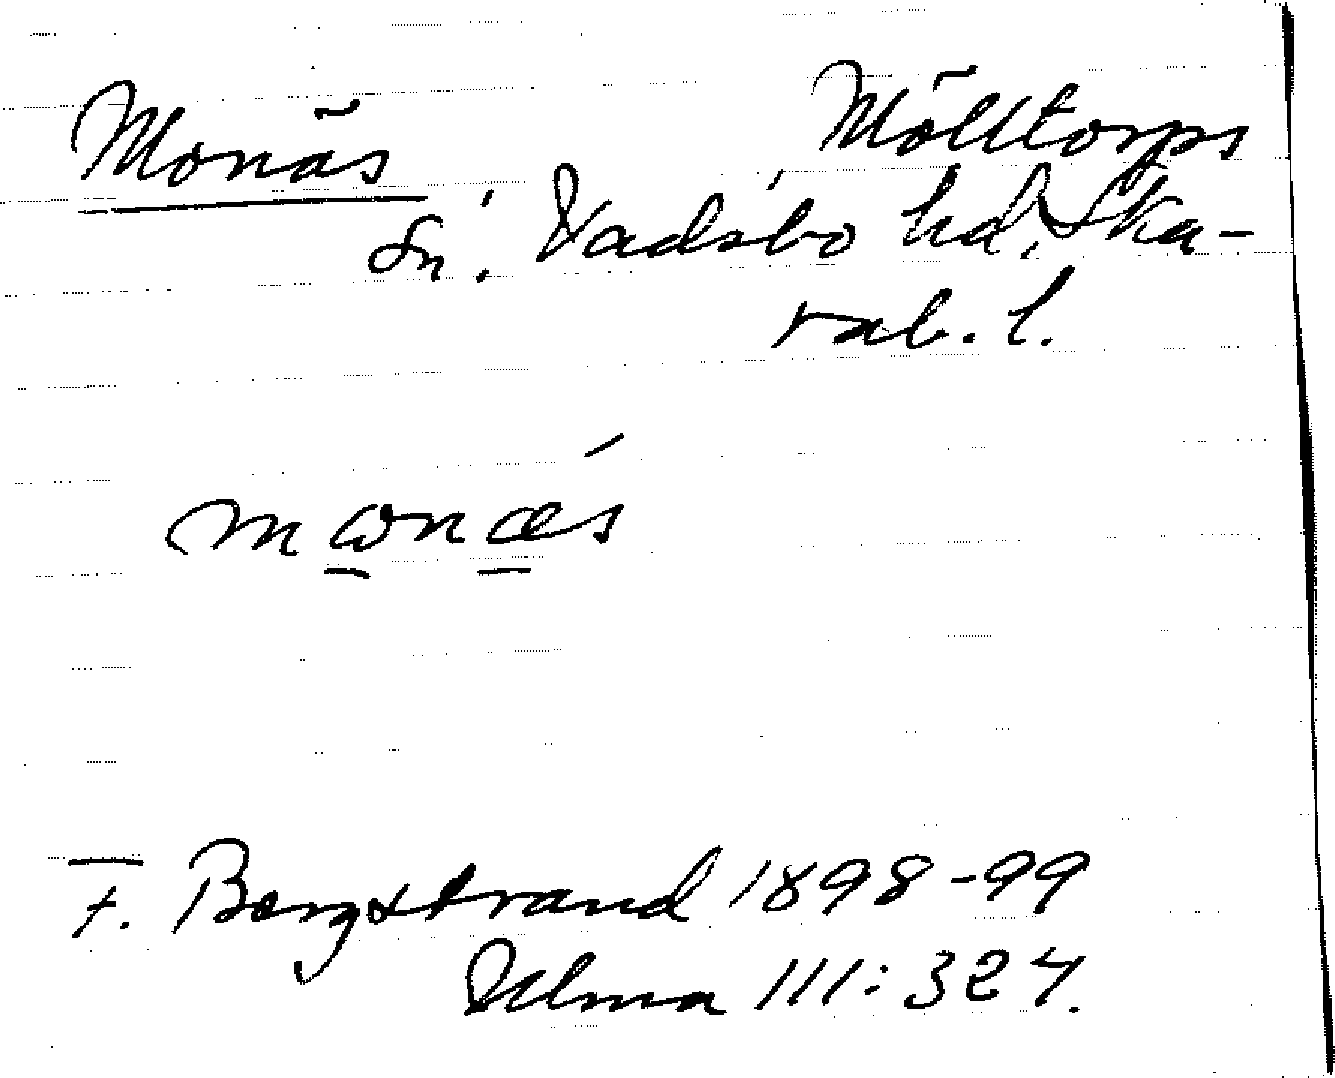 Monäs Mölltorps
sn. Vadsbo hd, Ska-
rab. l.
mɷnæs
F. Bergstrand 1898-99
Ulma 111:324.